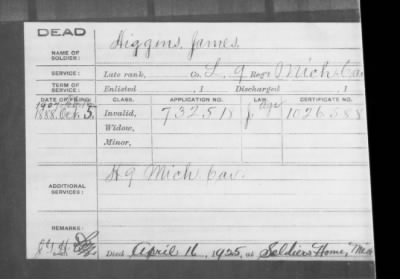 DEAD
NAME OF SOLDIER: Higgins, James
SERVICE: Late rank, Co. L, 9 Reg't Mich. Cav
TERM OF SERVICE: Enlisted , 1 Discharged , 1
DATE OF FILING. CLASS. APPLICATION NO. LAW. CERTIFICATE NO.
1888, Oct. 5. Invalid, 732518 1026588
Widow,
Minor,
ADDITIONAL SERVICES: H 9 Mich. Cav.
REMARKS:
Died April 16, 1925, at Soldiers Home, Mich